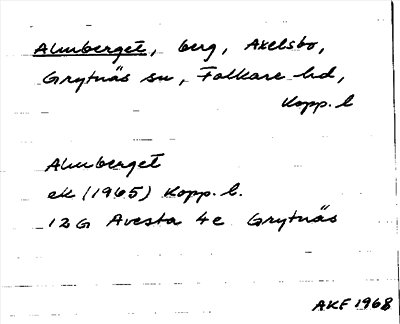 Almberget, berg, Axelsbo,
Grytnäs sn, Folkare hd,
Kopp. l
Almberget
ek (1965) Kopp. l.
12G Avesta 4e Grytnäs
AKF 1968